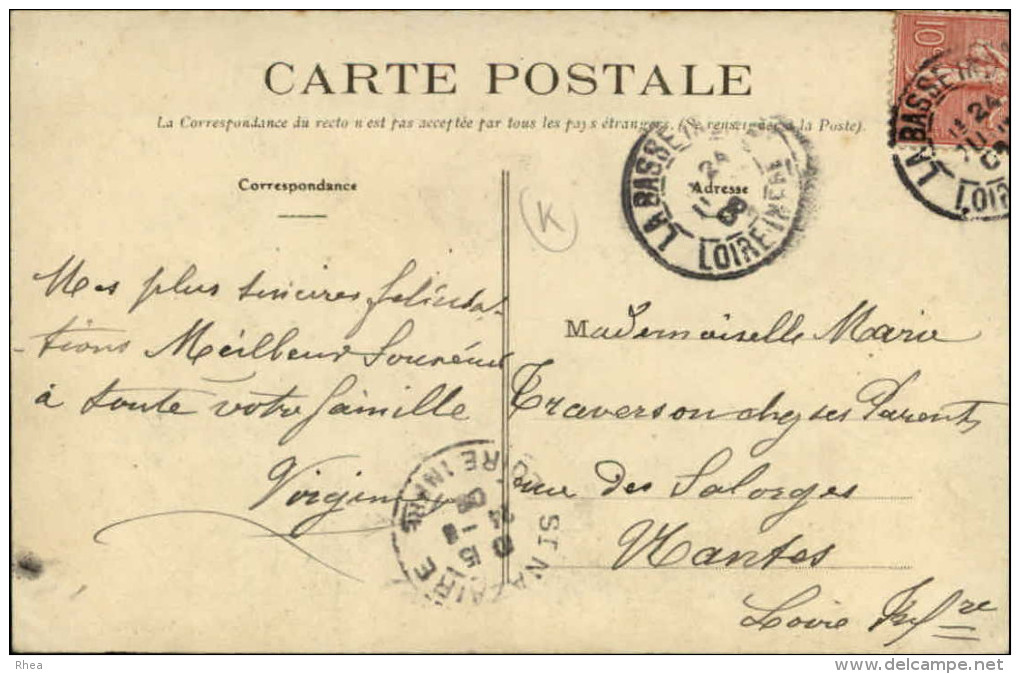 CARTE POSTALE
La Correspondance du recto n'est pas acceptée par tous les pays étrangers. (Se renseigner à la Poste).
Correspondance
Adresse
10
LA BASSE INDRE
24
LOIRE INFRE
LA BASSE IN
24
08
LOIR
K
Mes plus sincires félicita-
-tions Meilleur Souvenir
à toute votre famille
Virginie
Mademoiselle Marie
Traverson chez ses Parents
rue des Salorges
Nantes
Loire Infre
ST NAZAIRE
LOIRE INFRE
15
24
08
Rhea
www.delcampe.net